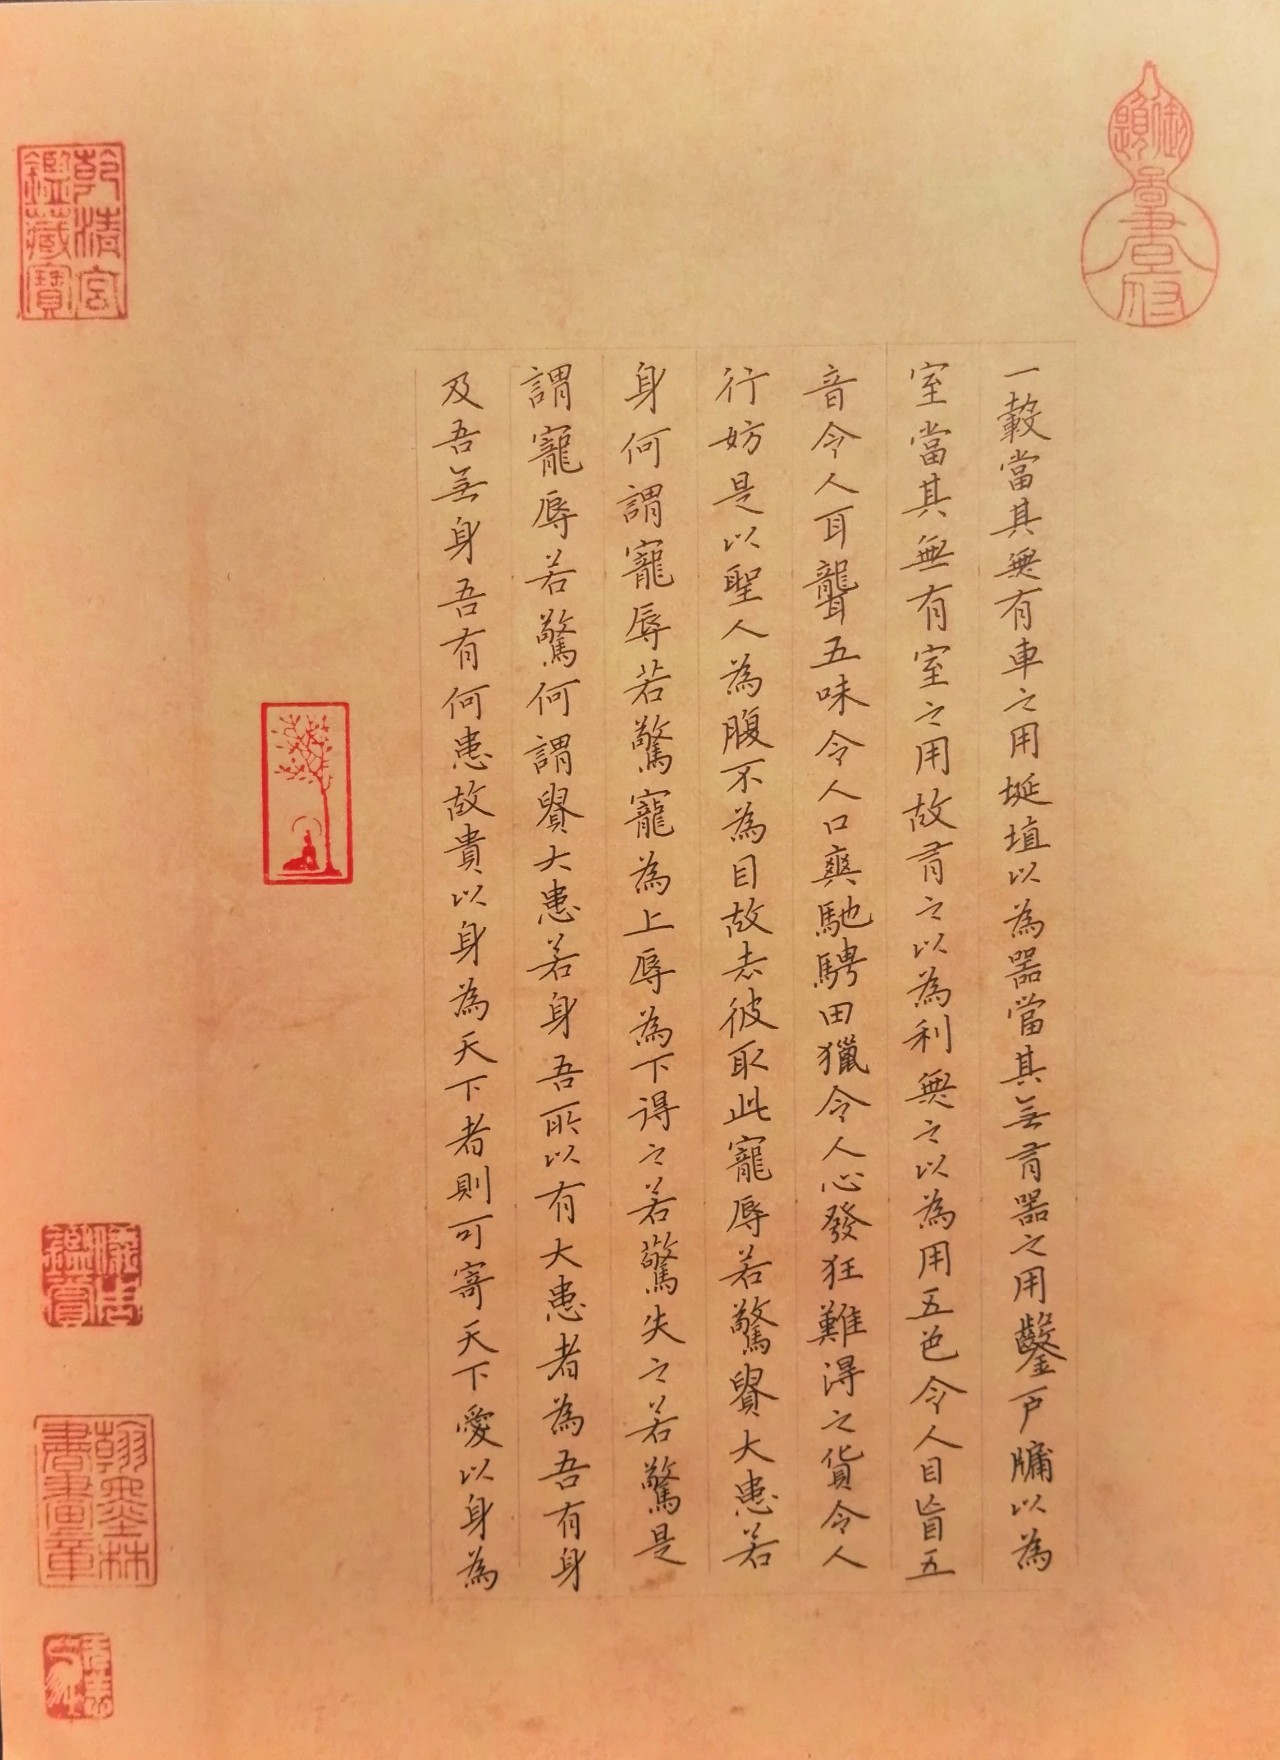 一轂當其無有車之用埏埴以為器當其無有器之用鑿戶牖以為
室當其無有室之用故有之以為利無之以為用五色令人目盲五
音令人耳聾五味令人口爽馳騁田獵令人心發狂難得之貨令人
行妨是以聖人為腹不為目故去彼取此寵辱若驚貴大患若
身何謂寵辱若驚寵為上辱為下得之若驚失之若驚是
謂寵辱若驚何謂貴大患若身吾所以有大患者為吾有身
及吾無身吾有何患故貴以身為天下者則可寄天下愛以身為
乾清宮
鑑藏寶
鑑賞
翰墨林
書畫章